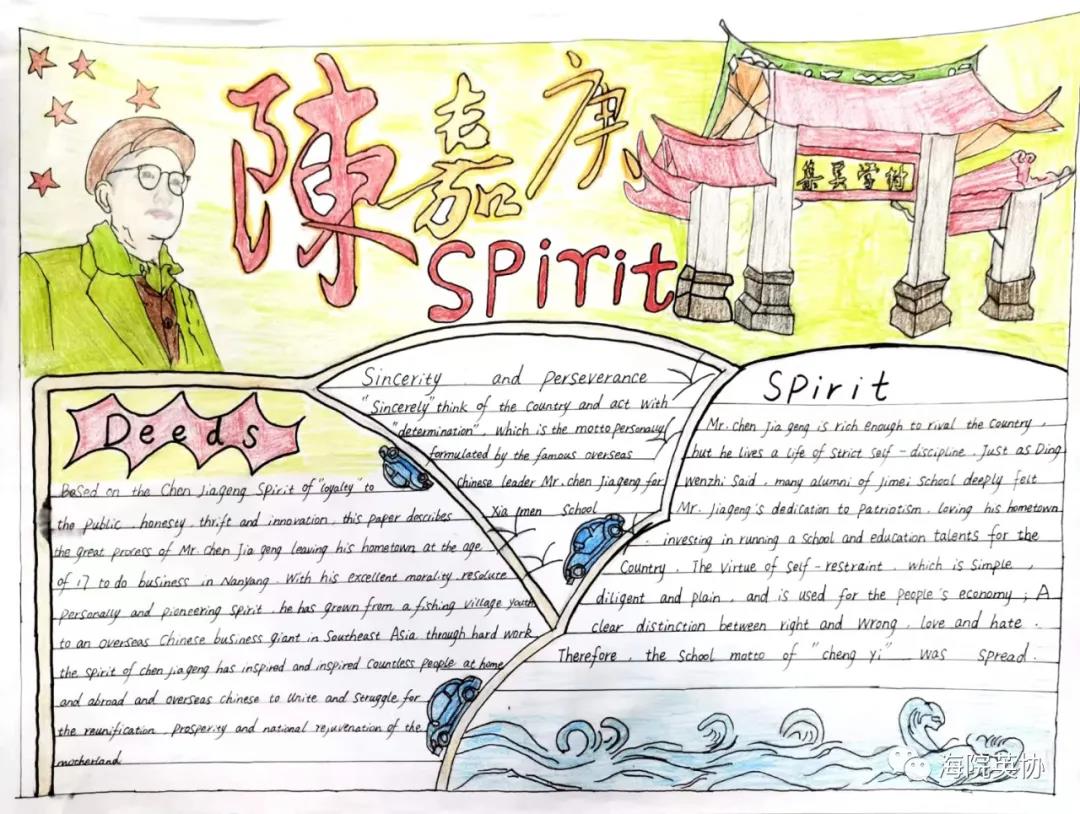 陳嘉庚
Spirit
集美学村
Deeds
Based on the Chen Jiageng Spirit of "loyalty" to
the public, honesty, thrift and innovation, this paper describes
the great process of Mr. Chen Jia geng leaving his hometown at the age
of 17 to do business in Nanyang. With his excellent morality, resolute
personally and pioneering spirit, he has grown from a fishing village youth
to an overseas Chinese business giant in Southeast Asia through hard work
the spirit of chen jiageng has inspired and inspired countless people at home
and abroad and overseas chinese to unite and struggle for
the reunification, prosperity and national rejuvenation of the
motherland
Sincerity and perseverance
"Sincerely" think of the country and act with
"determination", which is the motto personally
formulated by the famous overseas
Chinese leader Mr. chen Jiageng for
Xia men School
Spirit
Mr. chen Jia geng is rich enough to rival the country,
but he lives a life of strict self-discipline. Just as Ding
Wenzhi said, many alumni of Jimei School deeply felt
Mr. Jiageng's dedication to patriotism, loving his hometown
, investing in running a school and education talents for the
Country. The virtue of self-restraint, which is simple,
diligent and plain, and is used for the people's economy; A
clear distinction between right and wrong, love and hate.
Therefore, the school motto of "cheng yi" was spread.
海院英协